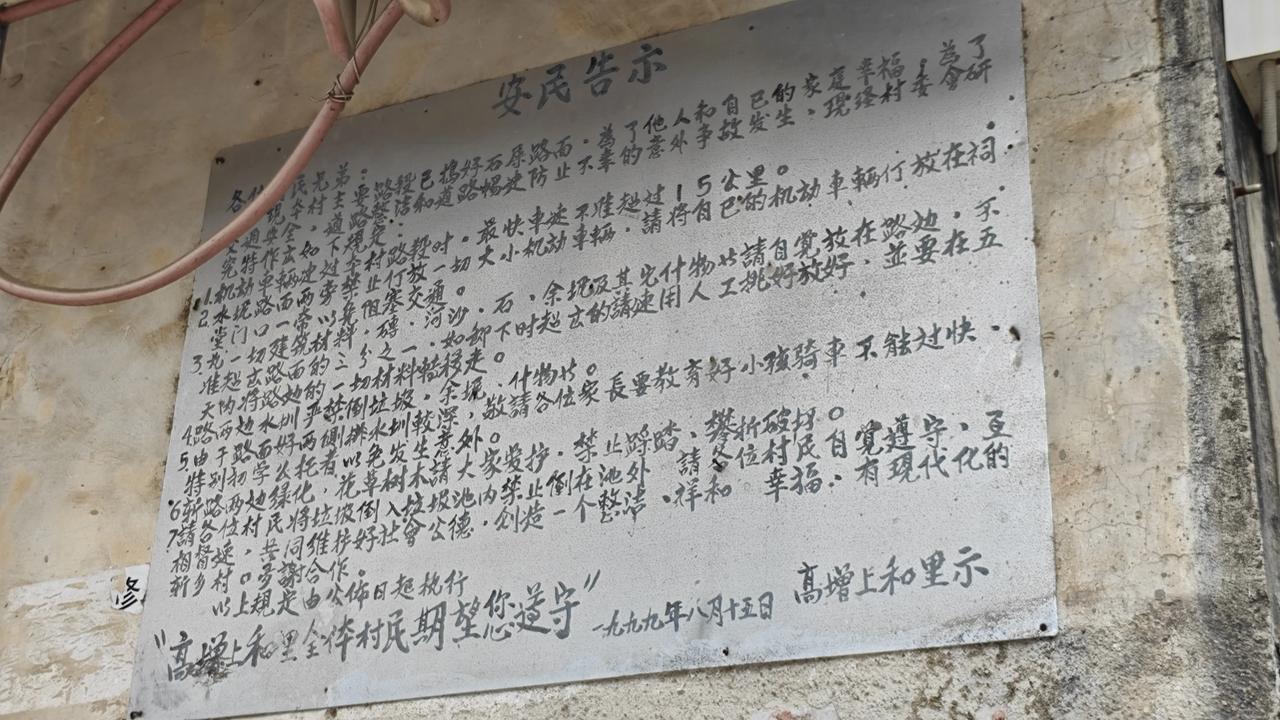 安民告示
各 民兄弟：
現 本村主要路段已搗好石屎路面，為了他人和自己的家庭幸福，為了
交通安全，道路整洁和道路暢通防止不幸的意外事故发生，現经村委会研
究特作出如下規定：
1.机动車輛速过本村路段时，最快車速不准超过15公里。
2.水坭路面两旁禁止仃放一切大小机动車輛，請将自己的机动車輛仃放在祠
堂门口一帶以免阻塞交通。
3.凡一切建筑材料，磚，河沙，石，余坭及其它什物 請自覚放在路边，不
准超出路面的三分之一，如卸下时超玄的請速用人工挑好放好，並要在五
天内将路边的一切材料轉移走。
4.路两边水圳严禁倒垃圾，余坭，什物 。
5.由于路面两側排水圳較深，敬請各位家長要教育好小孩騎車不能过快
特别初学 者以免发生意外。
6.新路两边绿化，花草树木請大家爱护，禁止踩踏，攀折破坏。
7.請各位村民将垃圾倒入垃圾池内禁止倒在池外 請各位村民自覚遵守，互
相督速，共同维护好社會公德，创造一个整洁，祥和 幸福，有現代化的
新乡村。多謝合作。
以上規定由公佈日起执行
高增上和里示
“高增上和里全体村民期望您遵守” 一九九九年八月十五日
修